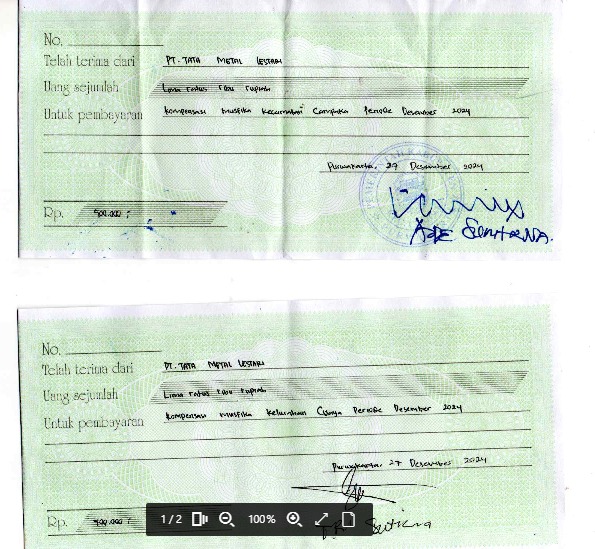 No.
Telah terima dari PT. TATA METAL LESTARI
Uang sejumlah Lima ratus ribu rupiah
Untuk pembayaran Kompensasi Muspika Kecamatan Campaka Periode Desember 2024
Purwakarta, 27 Desember 2024
Rp. 500.000 ;
ADE
No.
Telah terima dari PT. TATA METAL LESTARI
Uang sejumlah Lima ratus ribu rupiah
Untuk pembayaran Kompensasi Muspika Kelurahan Periode Desember 2024
Purwakarta, 27 Desember 2024
Rp. 500.000 ;
1 / 2 100%